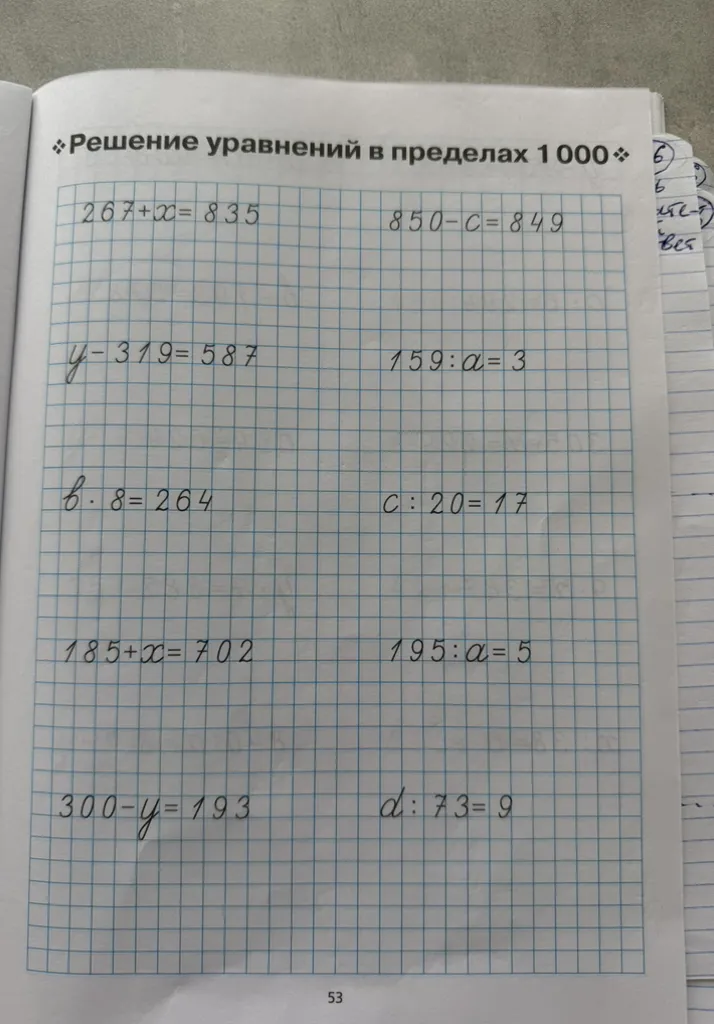 ❖Решение уравнений в пределах 1 000❖
267+x= 835
850-c= 849
y- 319= 587
159:a= 3
в· 8= 264
c : 20= 17
185+x= 702
195:a= 5
300-y= 193
d: 73= 9
53